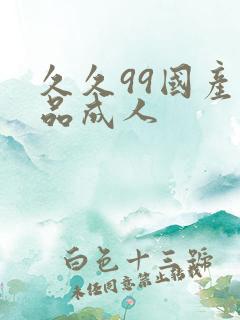 久久99國產
品成人
白色十三號
未经同意禁止转载